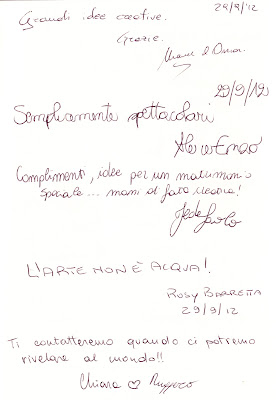 29/9/12
Grandi idee creative.
Grazie.
29/9/12
Semplicemente spettacolari
Complimenti, idee per un matrimonio
speciale... mani di fata
L'ARTE NON È ACQUA!
ROBY BARRETTA
29/9/12
Ti contatteremo quando ci potremo
rivelare al mondo!!
Chiara ♡ Ruggero